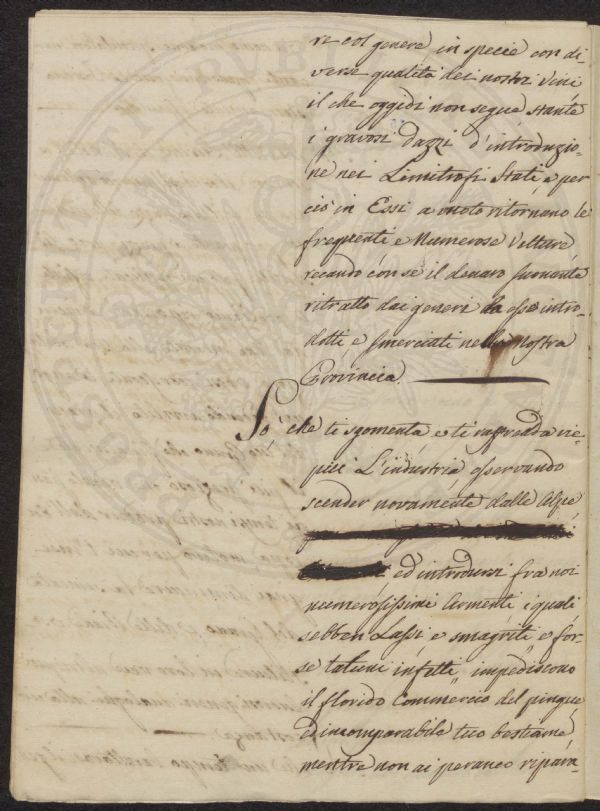 re col genere in specie con di
verse qualità dei nostri vini
il che oggidì non segue stante
i gravosi Dazzi d'introduzio-
ne nei Limitrofi Stati, e per
ciò in Essi a vuoto ritornano le
frequenti e Numerose Vetture
recando con se il denaro
ritratto dai generi da esse intro-
dotti e smerciati nella nostra
Provincia.
So che ti sgomenta e ti raffredda vie-
più L'industria osservando
scender novamente dalle Alpe
ed introdursi fra noi
numerosissimi Armenti i quali
sebben Lassi e smagriti e for-
se taluni infetti impediscono
il florido Commercio del pingue
ed incomparabile tuo bestiame
mentre non ai peranco ripara-